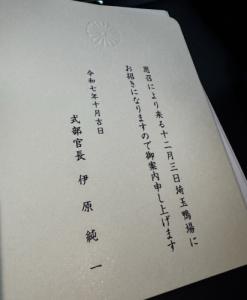 思召により来る十二月三日埼玉鴨場に
お招きになりますので御案内申し上げます
令和七年十月吉日
式部官長　伊原純一